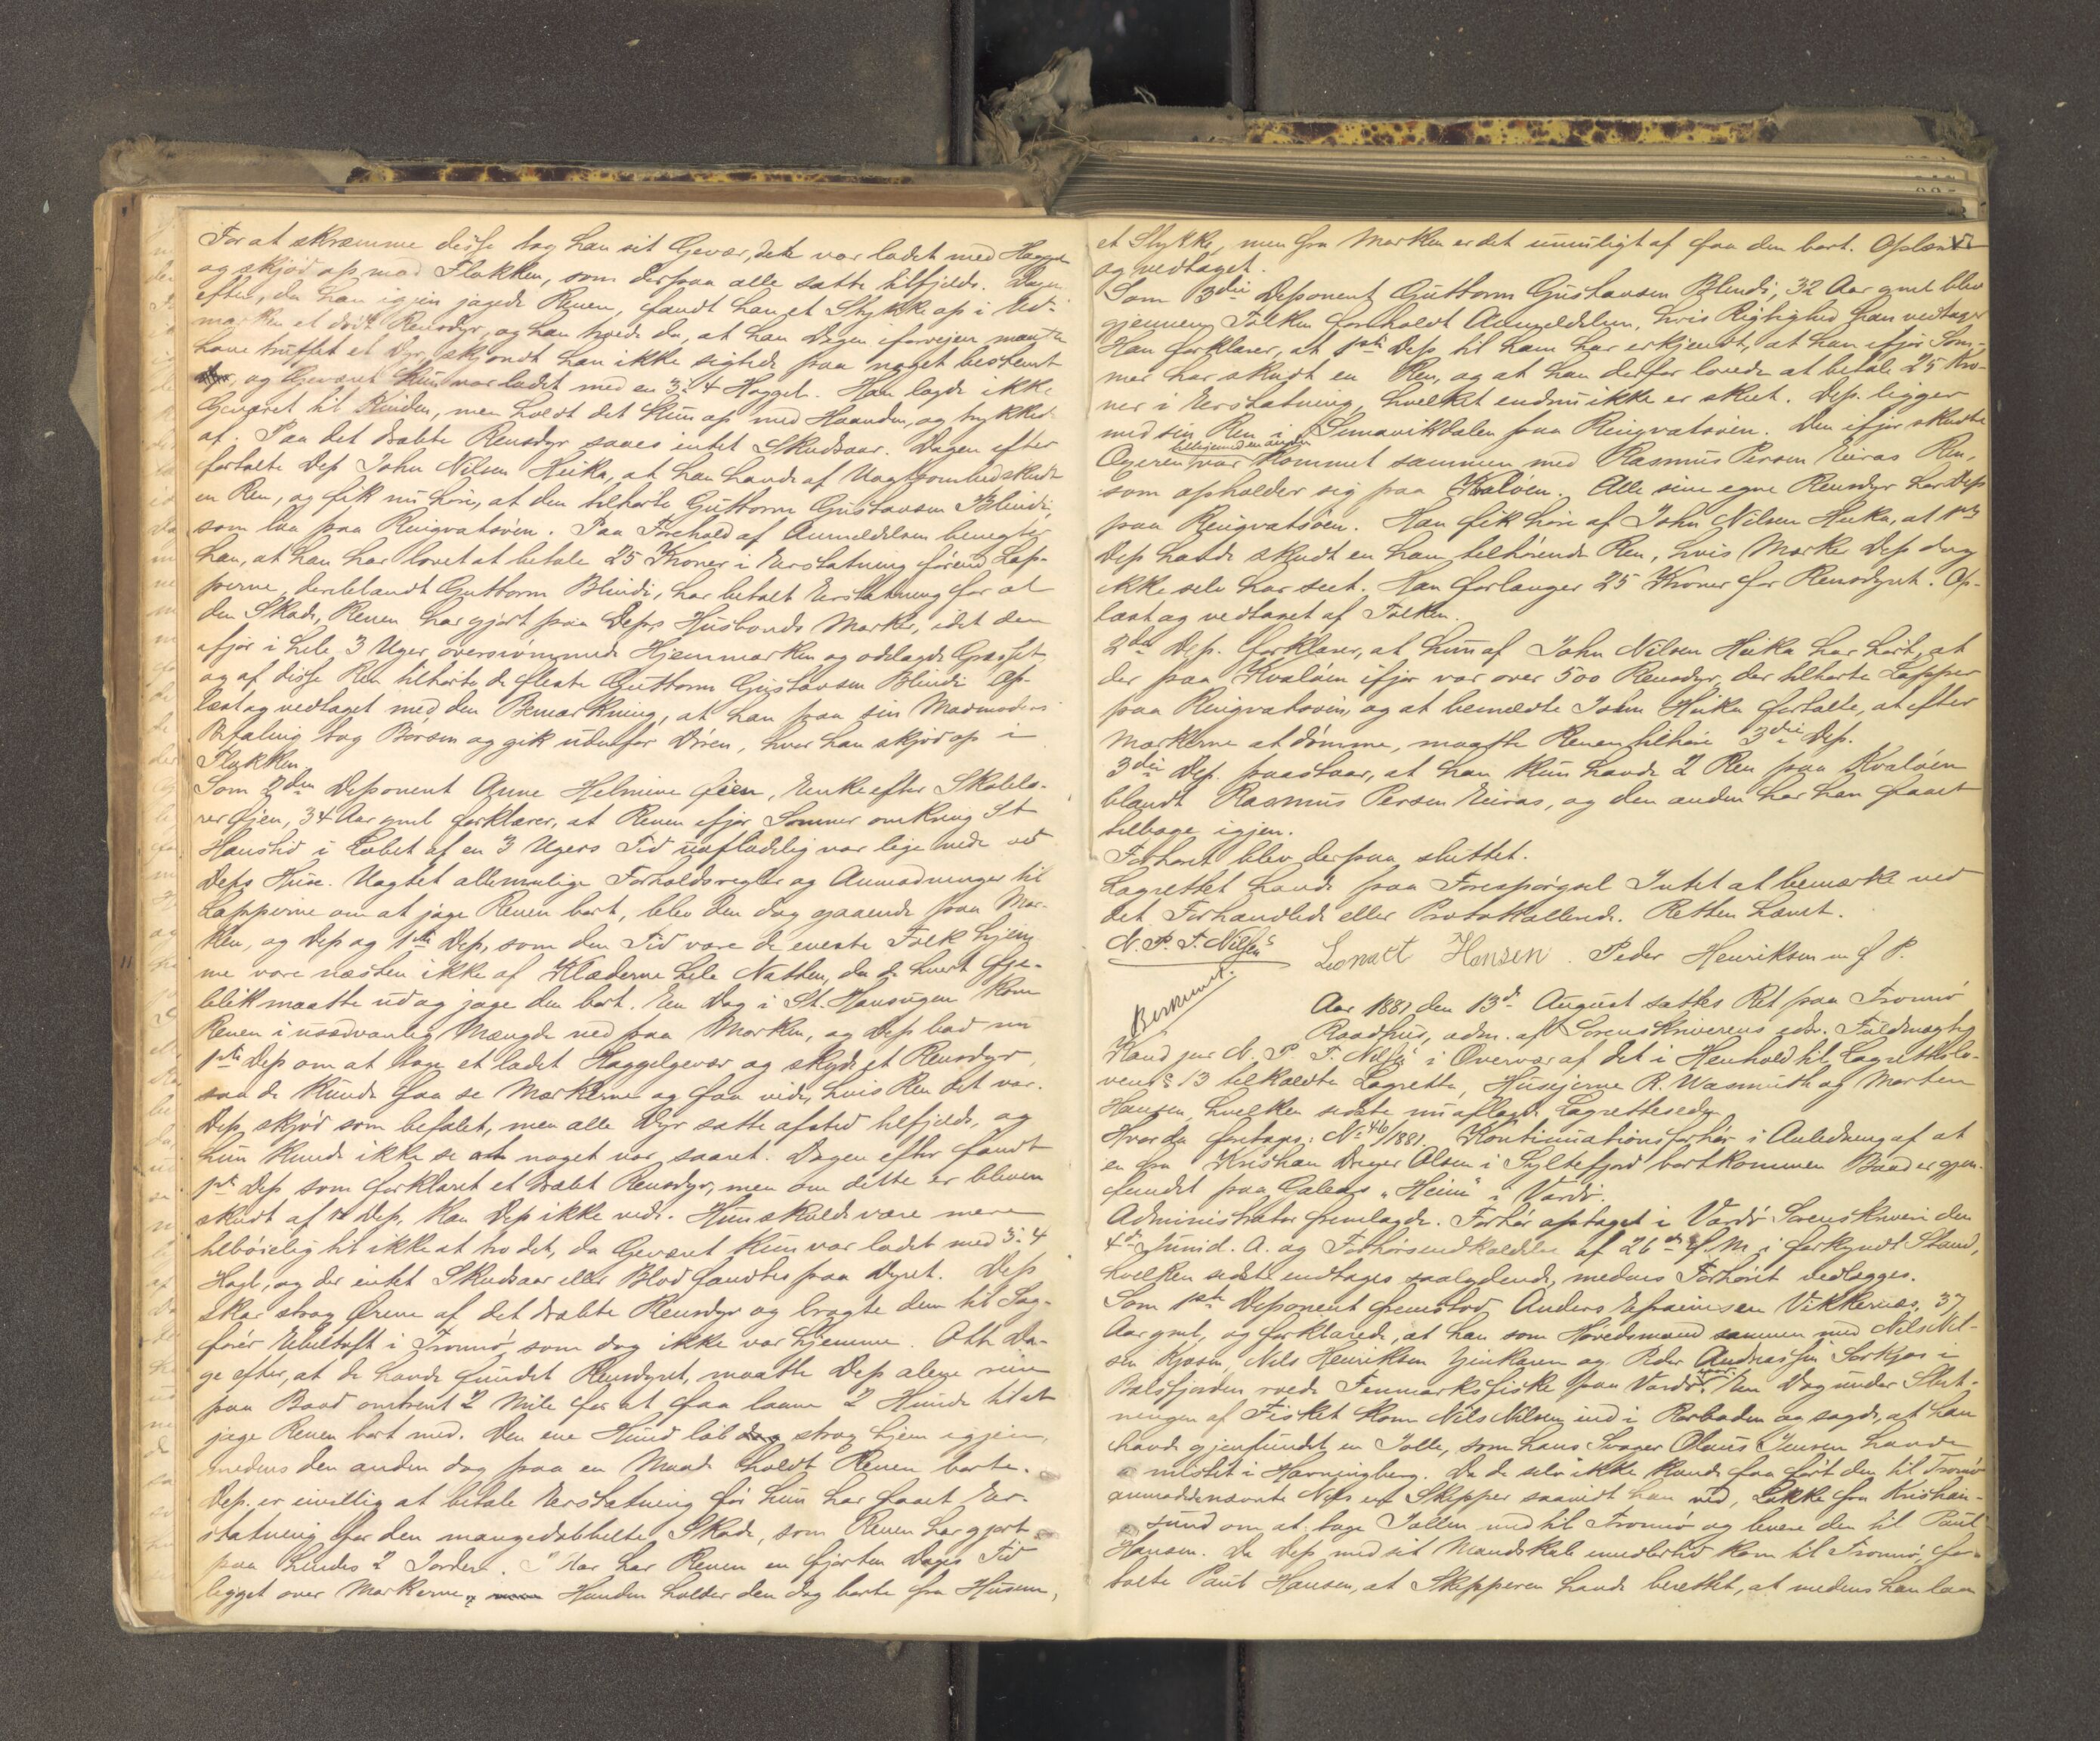 For at skræmme disse tog han sit Gevær, dette var ladet med Haggel
og skjød op mod Flokken, som derpaa alle satte tilfjelds. Dagen
efter, da han igjen jagede Renen, fandt han et Stykke op i Ud-
marken et dødt Rensdyr, og han troede da, at han Dagen iforveien maatte
have truffet et Dyr, skjøndt han ikke sigtede paa noget bestemt
og Geværet kun var ladet med en 3 à 4 Haggel. Han lagde ikke
Geværet til Kinden, men holdt det kun op med Haanden, og trykked
af. Paa det dræbte Rensdyr saaes intet Skudsaar. Dagen efter
fortalte Dep John Nilsen Heika, at han havde af Uagtsomhed skudt
en Ren, og fik nu høre, at den tilhørte Guttorm Gustavsen Blindi,
som laa paa Ringvatsøen. Paa Forehold af Anmeldelsen benegter
han, at han har lovet at betale 25 Kroner i Erstatning førend Lap-
perne, deriblandt Guttorm Blindi, har betalt Erstatning for al
den Skade, Renen har gjort paa Deps Husbonds Marker, idet den
ifjor i hele 3 Uger oversvømmede Hjemmarken og ødelagde Græsset,
og af disse Ren tilhørte de fleste Guttorm Gustavsen Blindi Op-
læst og vedtaget med den Bemærkning, at han paa sin Madmoders
Befaling tog Børsen og gik udenfor Døren, hvor han skjød op i
Flokken.
Som 2den Deponent Anne Helmine Gjen, Enke efter Skolelæ-
rer Gjen, 34 Aar gml forklarer, at Renen ifjor Sommer omkring St
Hanstid i Løbet af en 3 Ugers Tid uafladelig var lige nede ved
Deps Huse. Uagtet allemulige Forholdsregler og Anmodninger til
Lapperne om at jage Renen bort, blev den dog gaaende paa Mar-
ken, og Dep og 1ste Dep, som den Tid vare de eneste Folk hjem-
me vare næsten ikke af Klæderne hele Natten, da de hvert Øie-
blik maatte ud og jage den bort. En Dag i St. Hansugen kom
Renen i usædvanlig Mængde ned paa Marken, og Dep bad nu
1ste Dep om at tage et ladet Haggelgevær og skyde et Rensdyr,
saa de kunde faa se Mærkerne og faa vide, hvis Ren det var.
Dep. skjød som befalet, men alle Dyr satte afsted tilfjelds, og
hun kunde ikke se at noget var saaret. Dagen efter fandt
1ste Dep som forklaret et dræbt Rensdyr, men om dette er bleven
skudt af 1ste Dep, kan Dep ikke vide. Hun skulde være mere
tilbøielig til ikke at tro det, da Geværet kun var ladet med 3 à 4
Hagl, og der intet Skudsaar eller Blod fandtes paa Dyret. Dep
skar strax Ørene af det dræbte Rensdyr og bragte dem til Sag-
fører Ebeltoft i Tromsø, som dog ikke var hjemme. Otte Da-
ge efter, at de havde fundet Rensdyret, maatte Dep alene reise
paa Baad omtrent 2 Mile for at faa laane 2 Hunde til at
jage Renen bort med. Den ene Hund løb dog strax hjem igjen,
medens den anden dog paa en Maade holdt Renen borte.
Dep. er uvillig at betale Erstatning før hun har faaet Er-
statning for den mangedobbelte Skade, som Renen har gjort
paa hendes 2 Jorder. I Aar har Renen en fjorten Dages Tid
ligget over Markerne, Hunden holder den dog borte fra Husene,
et Stykke, men fra Marken er det umuligt at faa den bort. Oplæst
og vedtaget.
Som 3die Deponent Guttorm Gustavsen Blindi, 32 Aar gml blev
gjennem Tolken foreholdt Anmeldelsen, hvis Rigtighed han vedtager
Han forklarer, at 1ste Dep. til ham har erkjendt, at han ifjor Som-
mer har skudt en Ren, og at han derfor lovede at betale 25 Kro-
ner i Erstatning, hvilket endnu ikke er skeet. Dep. ligger
med sin Ren i Simavikdalen paa Ringvatsøen. Den ifjor skudte
tilligemed en anden
Oxeren var kommet sammen med Rasmus Persen Eiras Ren,
som opholder sig paa Kvaløen. Alle sine egne Rensdyr har Dep
paa Ringvatsøen. Han fik høre af John Nilsen Heika, at 1ste
Dep havde skudt en ham tilhørende Ren, hvis Mærke Dep dog
ikke selv har seet. Han forlanger 25 Kroner for Rensdyret. Op-
læst og vedtaget af Tolken.
2den Dep. forklarer, at hun af John Nilsen Heika har hørt, at
der paa Kvaløen ifjor var over 500 Rensdyr, der tilhørte Lapper
paa Ringvatsøen, og at bemeldte John Heika fortalte, at efter
Mærkerne at dømme, maatte Renen tilhøre 3die Dep.
3die Dep. paastaar, at han kun havde 2 Ren paa Kvaløen
blandt Rasmus Persen Eiras, og den anden har han faaet
tilbage igjen.
Forhøret blev derpaa sluttet.
Lagrettet havde paa Forespørgsel Intet at bemærke ved
det Forhandlede eller Protokollerede. Retten hævet.
N. P. T. Nilsen
Leonart Hansen. Peder Henriksen m f P.
Beskrevet.
Aar 1881 den 13de August sattes Ret paa Tromsø
Raadhus, adm. af Sorenskriverens edsv. Fuldmægtig
Kand jur N. P. T. Nilsen i Overvær af det i Henhold til Lagrettelo-
vens § 13 tilkaldte Lagrette, Husejerne R. Wasmuth og Morten
Hansen, hvilken sidste nu aflagde Lagretteseden
Hvorda foretoges: No 46/1881. Kontinuationsforhør i Anledning af at
en fra Kristian Dreyer Olsen i Syltefjord bortkommen Baad er gjen-
fundet paa Galeas "Heim" i Vardø.
Administrator fremlagde. Forhør optaget i Vardø Sorenskriveri den
4de Juni d. A. og Forhørsudkaldelse af 26de f. M. i forkyndt Stand,
hvilken sidste indtages saalydende, medens Forhøret vedlægges.
Som 1ste Deponent fremstod Anders Efraimsen Vikkernæs, 37
Aar gml, og forklarede, at han som Høvedsmand sammen med Nils Nil-
sen Kjosen, Nils Henriksen og Peder Andreassen Sørkjos i
iaar
Balsfjorden roede Finmarksfiske paa Vardø. En Dag under Slut-
ningen af Fisket kom Nils Nilsen ind i Rorboden og sagde, at han
havde gjenfundet en Jolle, som hans Svager Olaus Jensen havde
mistet i Havningberg. Da de selv ikke kunde faa ført den til Tromsø
anmodede nævnte Nils en Skipper saavidt han ved, Løkke fra Kristian-
sund om at tage Jollen med til Tromsø og levere den til Paul
Hansen. Da Dep med sit Mandskab imidlertid kom til Tromsø, for-
talte Paul Hansen, at Skipperen havde berettet, at medens han laa